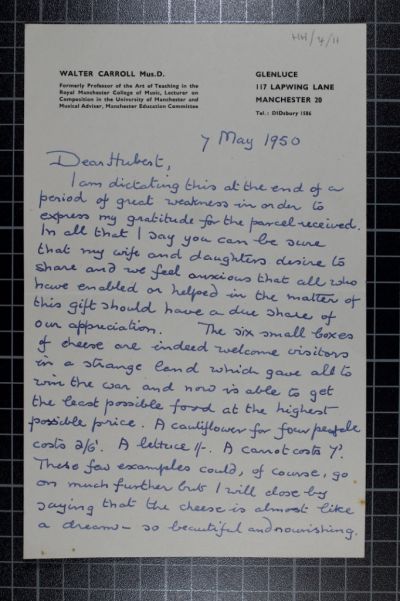 HH/4/11
WALTER CARROLL Mus.D.
Formerly Professor of the Art of Teaching in the
Royal Manchester College of Music, Lecturer on
Composition in the University of Manchester and
Musical Adviser, Manchester Education Committee
GLENLUCE
117 LAPWING LANE
MANCHESTER 20
Tel.: DIDsbury 1586
7 May 1950
Dear Hubert,
I am dictating this at the end of a
period of great weakness in order to
express my gratitude for the parcel received.
In all that I say you can be sure
that my wife and daughters desire to
share and we feel anxious that all who
have enabled or helped in the matter of
this gift should have a due share of
our appreciation. The six small boxes
of cheese are indeed welcome visitors
in a strange land which gave all to
win the war and now is able to get
the least possible food at the highest
possible price. A cauliflower for four people
costs 2/6. A lettuce 1/-. A carrot costs 7ᵈ.
These few examples could, of course, go
on much further but I will close by
saying that the cheese is almost like
a dream - so beautiful and nourishing.